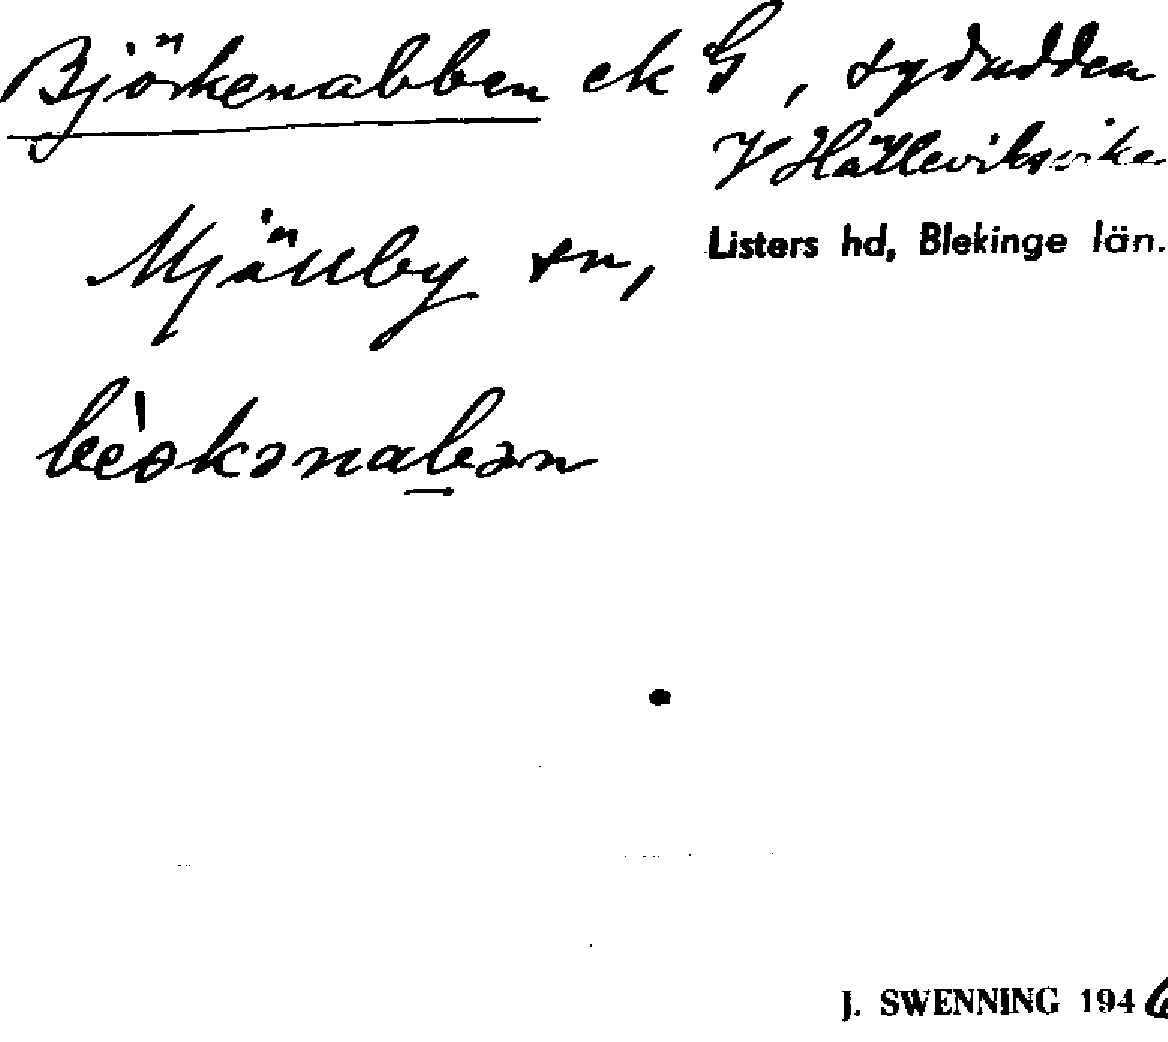 Björkenabben ek G, sydudden
V Hälleviksvike
Mjällby sn,
Listers hd, Blekinge län.
bèəkənabən
J. SWENNING 1946